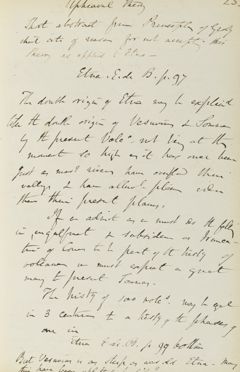 Upheaval Theory 23
Short abstract from Principles of Geology
short note of reason for not accepting this
theory as applied to Etna -
Etna. E. de B. p. 97
The double origin of Etna may be explained
like the double origin of Vesuvius & Somma
by the present Volc° not being at the
moment so high as it has once been
Just as most rivers have their
valleys, & have alluvial plains older
than their present plains.
If we admit as we must as the
in, engulfment & subsidence as
of Cones to be part of the history of
volcanos we must expect a great
many to present Sommas.
The history of volc° may be
in 3 centuries to a history of the phases of
one in
Etna E. de B. p. 99
But Vesuvius is as steep as was old Etna - may
have been